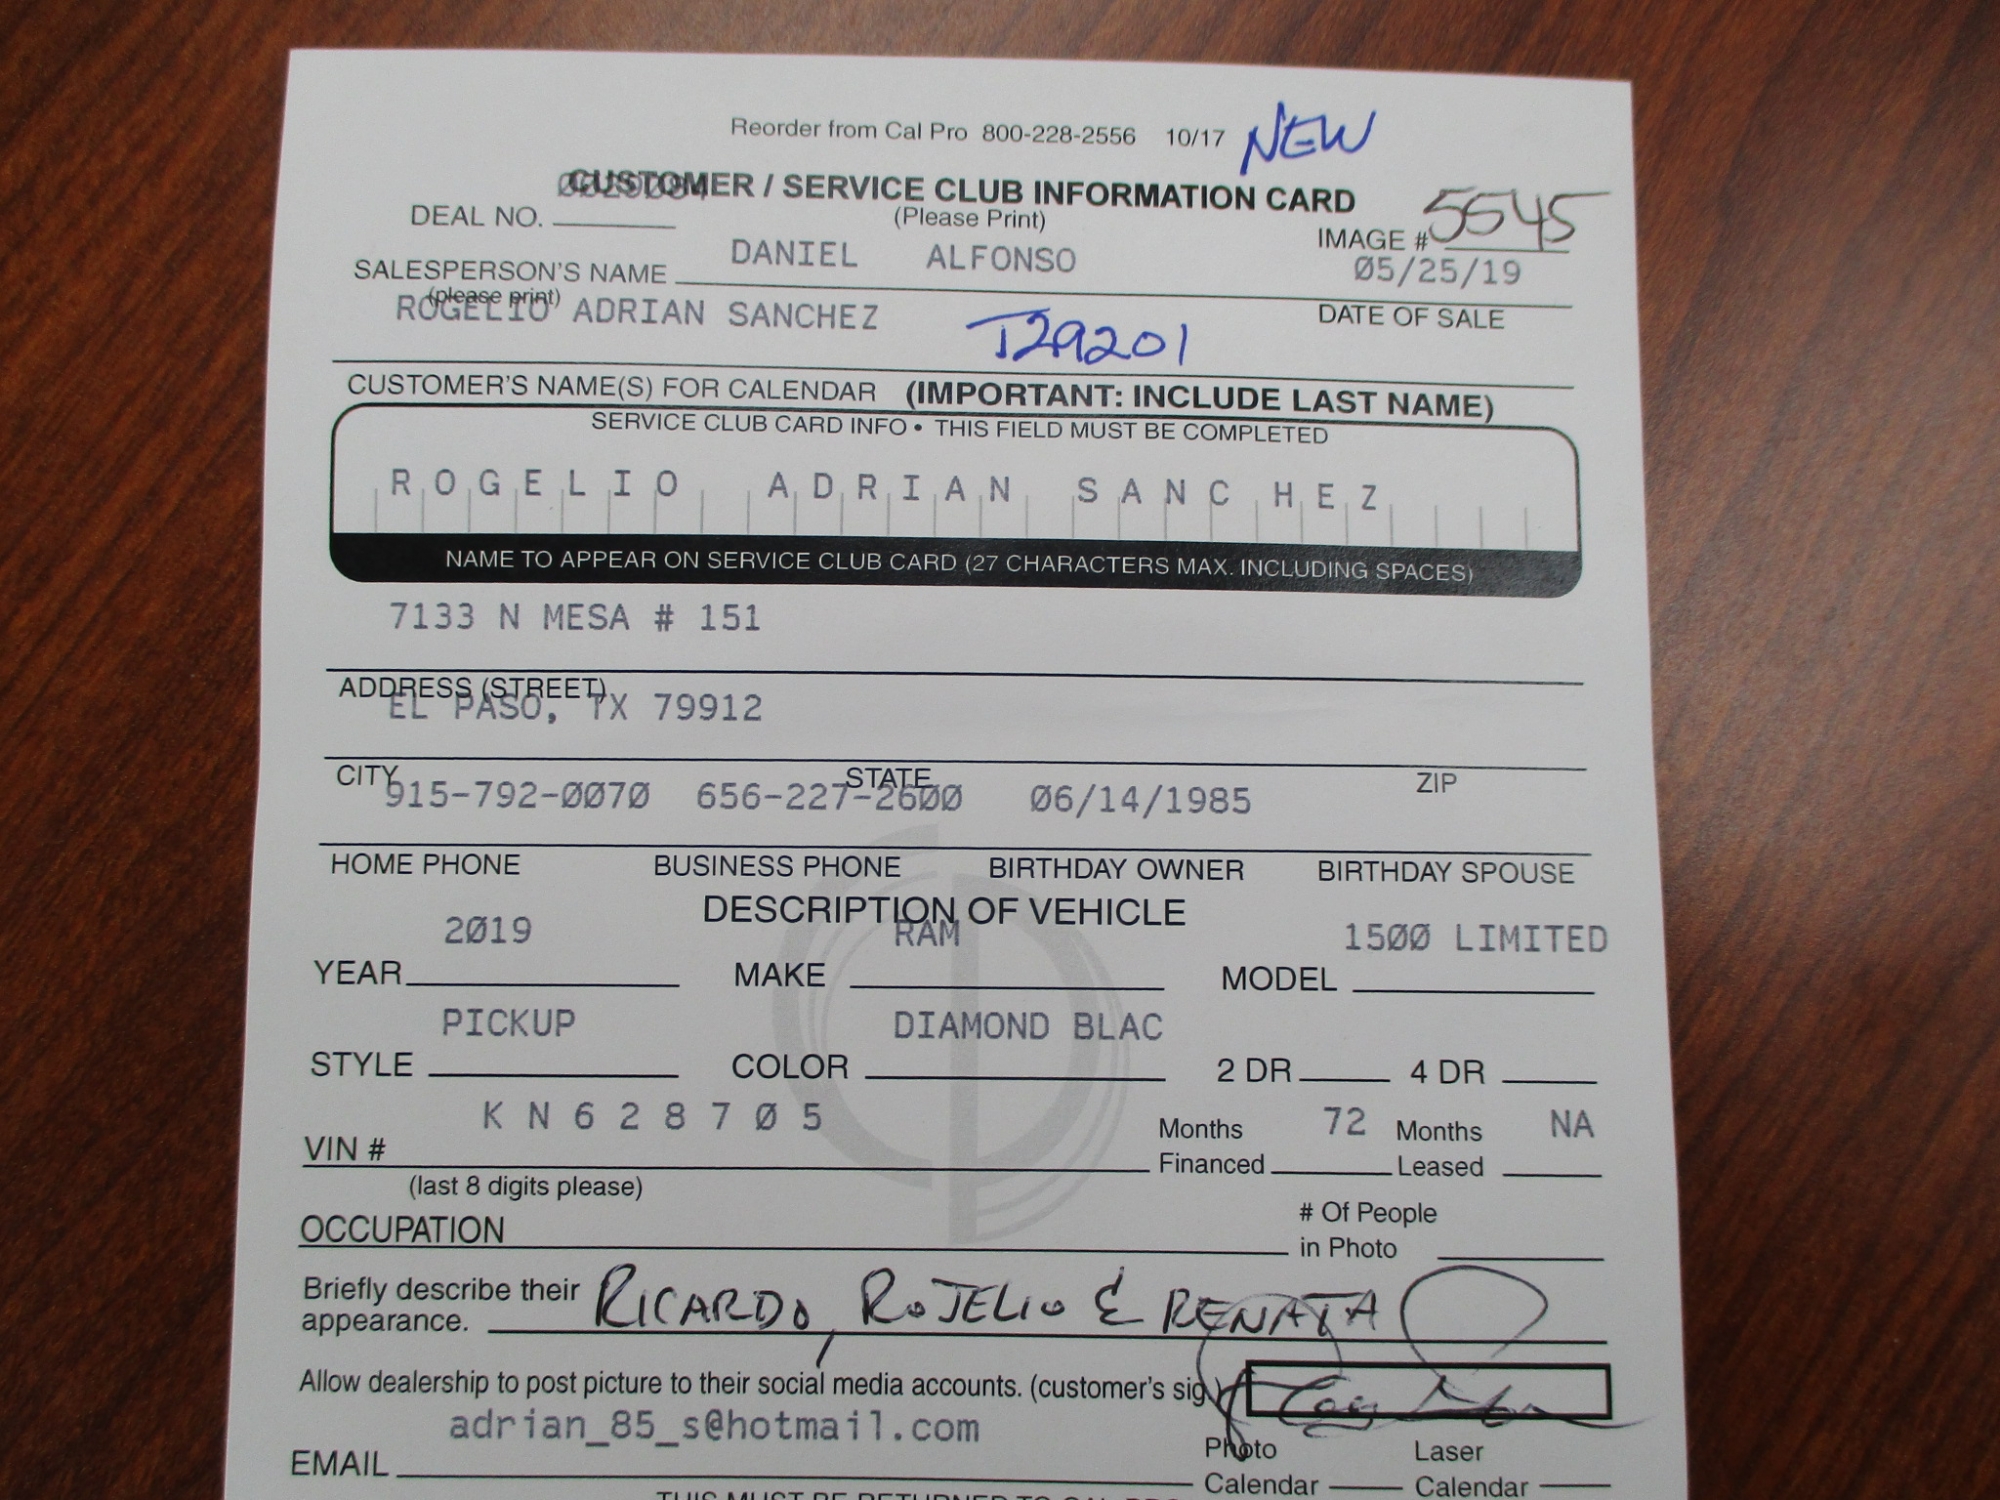 Reorder from Cal Pro 800-228-2556 10/17 NEW
CUSTOMER / SERVICE CLUB INFORMATION CARD
(Please Print)
DEAL NO.
IMAGE # 5545
DANIEL ALFONSO 05/25/19
SALESPERSON'S NAME
(please print)
DATE OF SALE
ROGELIO ADRIAN SANCHEZ T29201
CUSTOMER'S NAME(S) FOR CALENDAR (IMPORTANT: INCLUDE LAST NAME)
SERVICE CLUB CARD INFO • THIS FIELD MUST BE COMPLETED
ROGELIO ADRIAN SANCHEZ
NAME TO APPEAR ON SERVICE CLUB CARD (27 CHARACTERS MAX. INCLUDING SPACES)
7133 N MESA # 151
ADDRESS (STREET)
EL PASO, TX 79912
CITY STATE ZIP
915-792-0070 656-227-2600 06/14/1985
HOME PHONE BUSINESS PHONE BIRTHDAY OWNER BIRTHDAY SPOUSE
DESCRIPTION OF VEHICLE
2019 RAM 1500 LIMITED
YEAR MAKE MODEL
PICKUP DIAMOND BLAC
STYLE COLOR 2 DR 4 DR
KN628705 72 NA
VIN # Months Financed Months Leased
(last 8 digits please)
OCCUPATION # Of People in Photo
Briefly describe their appearance. RICARDO, ROJELIO & RENATA
Allow dealership to post picture to their social media accounts. (customer's sig.)
adrian_85_s@hotmail.com
EMAIL Photo Calendar Laser Calendar